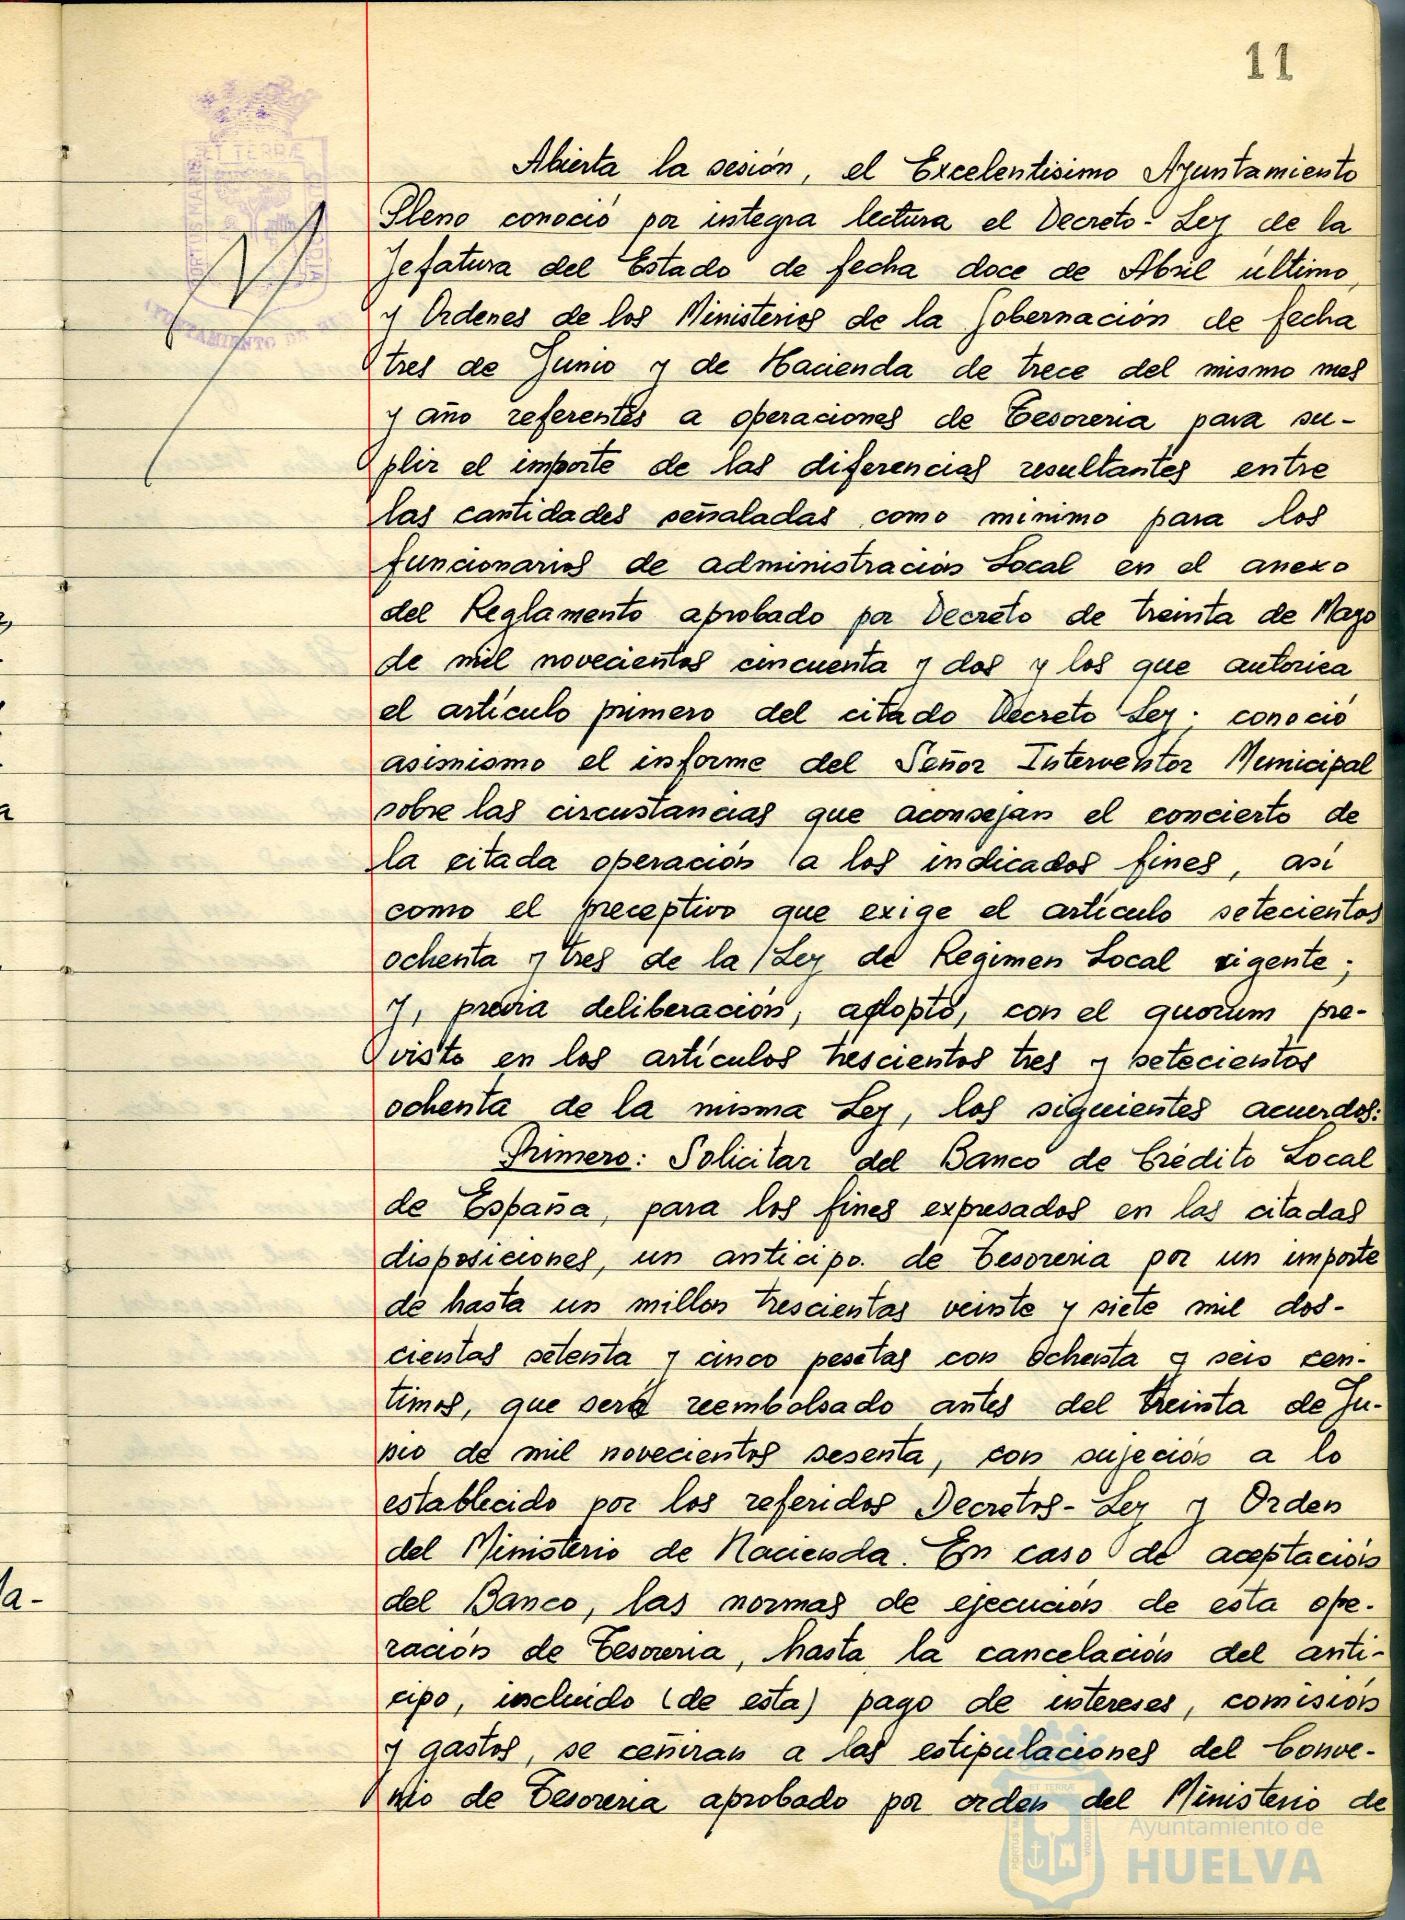 11
ET TERRÆ
PORTUS MARIS
CUSTODIA
AYUNTAMIENTO DE
Abierta la sesión, el Excelentisimo Ayuntamiento
Pleno conoció por integra lectura el Decreto-Ley de la
Jefatura del Estado de fecha doce de Abril último,
y Ordenes de los Ministerios de la Gobernación de fecha
tres de Junio y de Hacienda de trece del mismo mes
y año referentes a operaciones de Tesoreria para su-
plir el importe de las diferencias resultantes entre
las cantidades señaladas como minimo para los
funcionarios de administración Local en el anexo
del Reglamento aprobado por Decreto de treinta de Mayo
de mil novecientos cincuenta y dos y los que autorica
el artículo primero del citado Decreto Ley; conoció
asimismo el informe del Señor Interventor Municipal
sobre las circustancias que aconsejan el concierto de
la citada operación a los indicados fines, así
como el preceptivo que exige el artículo setecientos
ochenta y tres de la Ley de Regimen Local vigente;
y, previa deliberación, adoptó, con el quorum pre-
visto en los artículos trescientos tres y setecientos
ochenta de la misma Ley, los siguientes acuerdos:
Primero: Solicitar del Banco de Crédito Local
de España, para los fines expresados en las citadas
disposiciones, un anticipo. de Tesoreria por un importe
de hasta un millon trescientas veinte y siete mil dos-
cientas setenta y cinco pesetas con ochenta y seis cen-
timos, que será reembolsado antes del treinta de Ju-
nio de mil novecientos sesenta, con sujeción a lo
establecido por los referidos Decretos-Ley y Orden
del Ministerio de Hacienda. En caso de aceptación
del Banco, las normas de ejecución de esta ope-
ración de Tesoreria, hasta la cancelación del anti-
cipo, incluído (de esta) pago de intereses, comisión
y gastos, se ceñiran a las estipulaciones del Conve-
nio de Tesoreria aprobado por orden del Ministerio de
a
la-
Ayuntamiento de
HUELVA